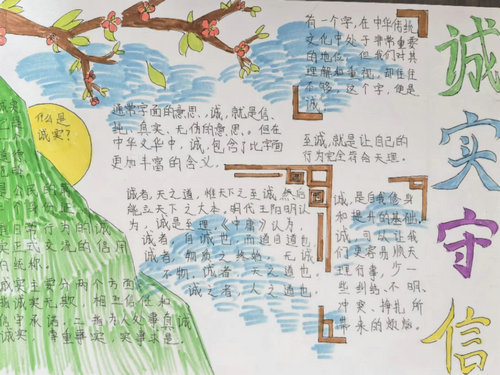 诚
实
守
信
有一个字，在中华传统
文化中处于非常重要
的地位，但我们对其
理解和重视，却往往
不够，这个字，便是
诚
什么是
诚实？
通常字面的意思，诚，就是信、
纯、真实、无伪的意思。但在
中华文华中，诚，包含了比字面
更加丰富的含义。
至诚，就是让自己的
行为完全符合天理。
诚者，天之道，惟天下之至诚，然后
能立天下之大本，明代王阳明认
为，诚是至理，《中庸》认为，
诚者，自诚也，而道自道也，
诚者，物质之终始，无诚
不物，诚者，天之道也，
诚之者，人之道也
诚，是自我修身
和提升的基础，
诚，可以让我
们更容易顺天
理行事，少一
些纠结、不明、
冲突、挣扎所
带来的烦恼。
公民的
日常行为的诚
实正式交流的信用
诚实主要分两个方面
诚实无欺，相互信任和
信守承诺，二者为人处事真诚
诚实，尊重事实，实事求是。